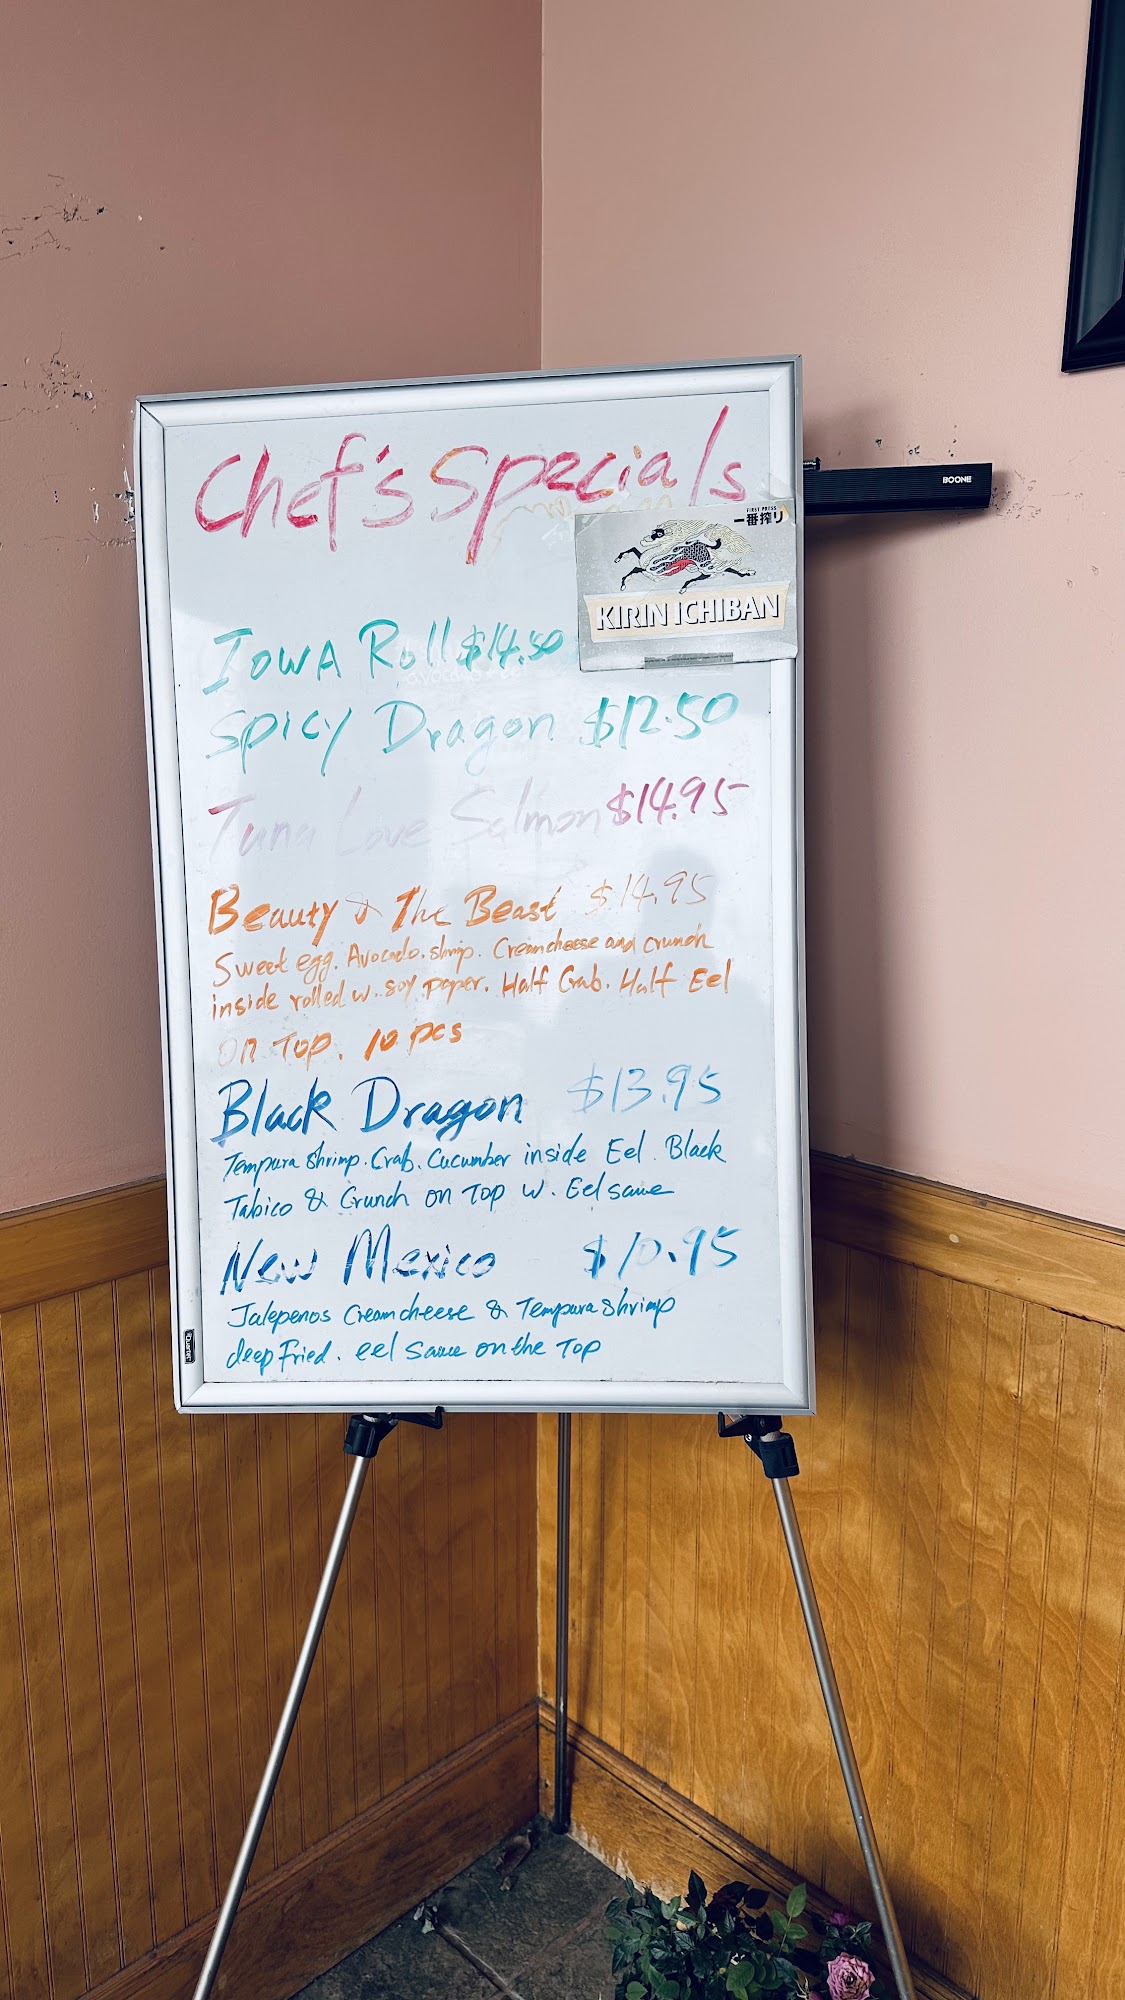 Chef's Specials
FIRST PRESS
一番搾り
KIRIN ICHIBAN
BOONE
Iowa Roll $14.50
Spicy Dragon $12.50
Tuna Love Salmon $14.95
Beauty & The Beast $14.95
Sweet egg. Avocado. shrip. Creamcheese and crunch
inside rolled w. soy paper. Half Crab. Half Eel
on Top. 10 pcs
Black Dragon $13.95
Tempura Shrimp. Crab. Cucumber inside Eel. Black
Tabico & Crunch on Top w. Eel saue
New Mexico $10.95
Jalepenos Creamcheese & Tempura shrimp
deep Fried. eel saue on the Top
Quartet